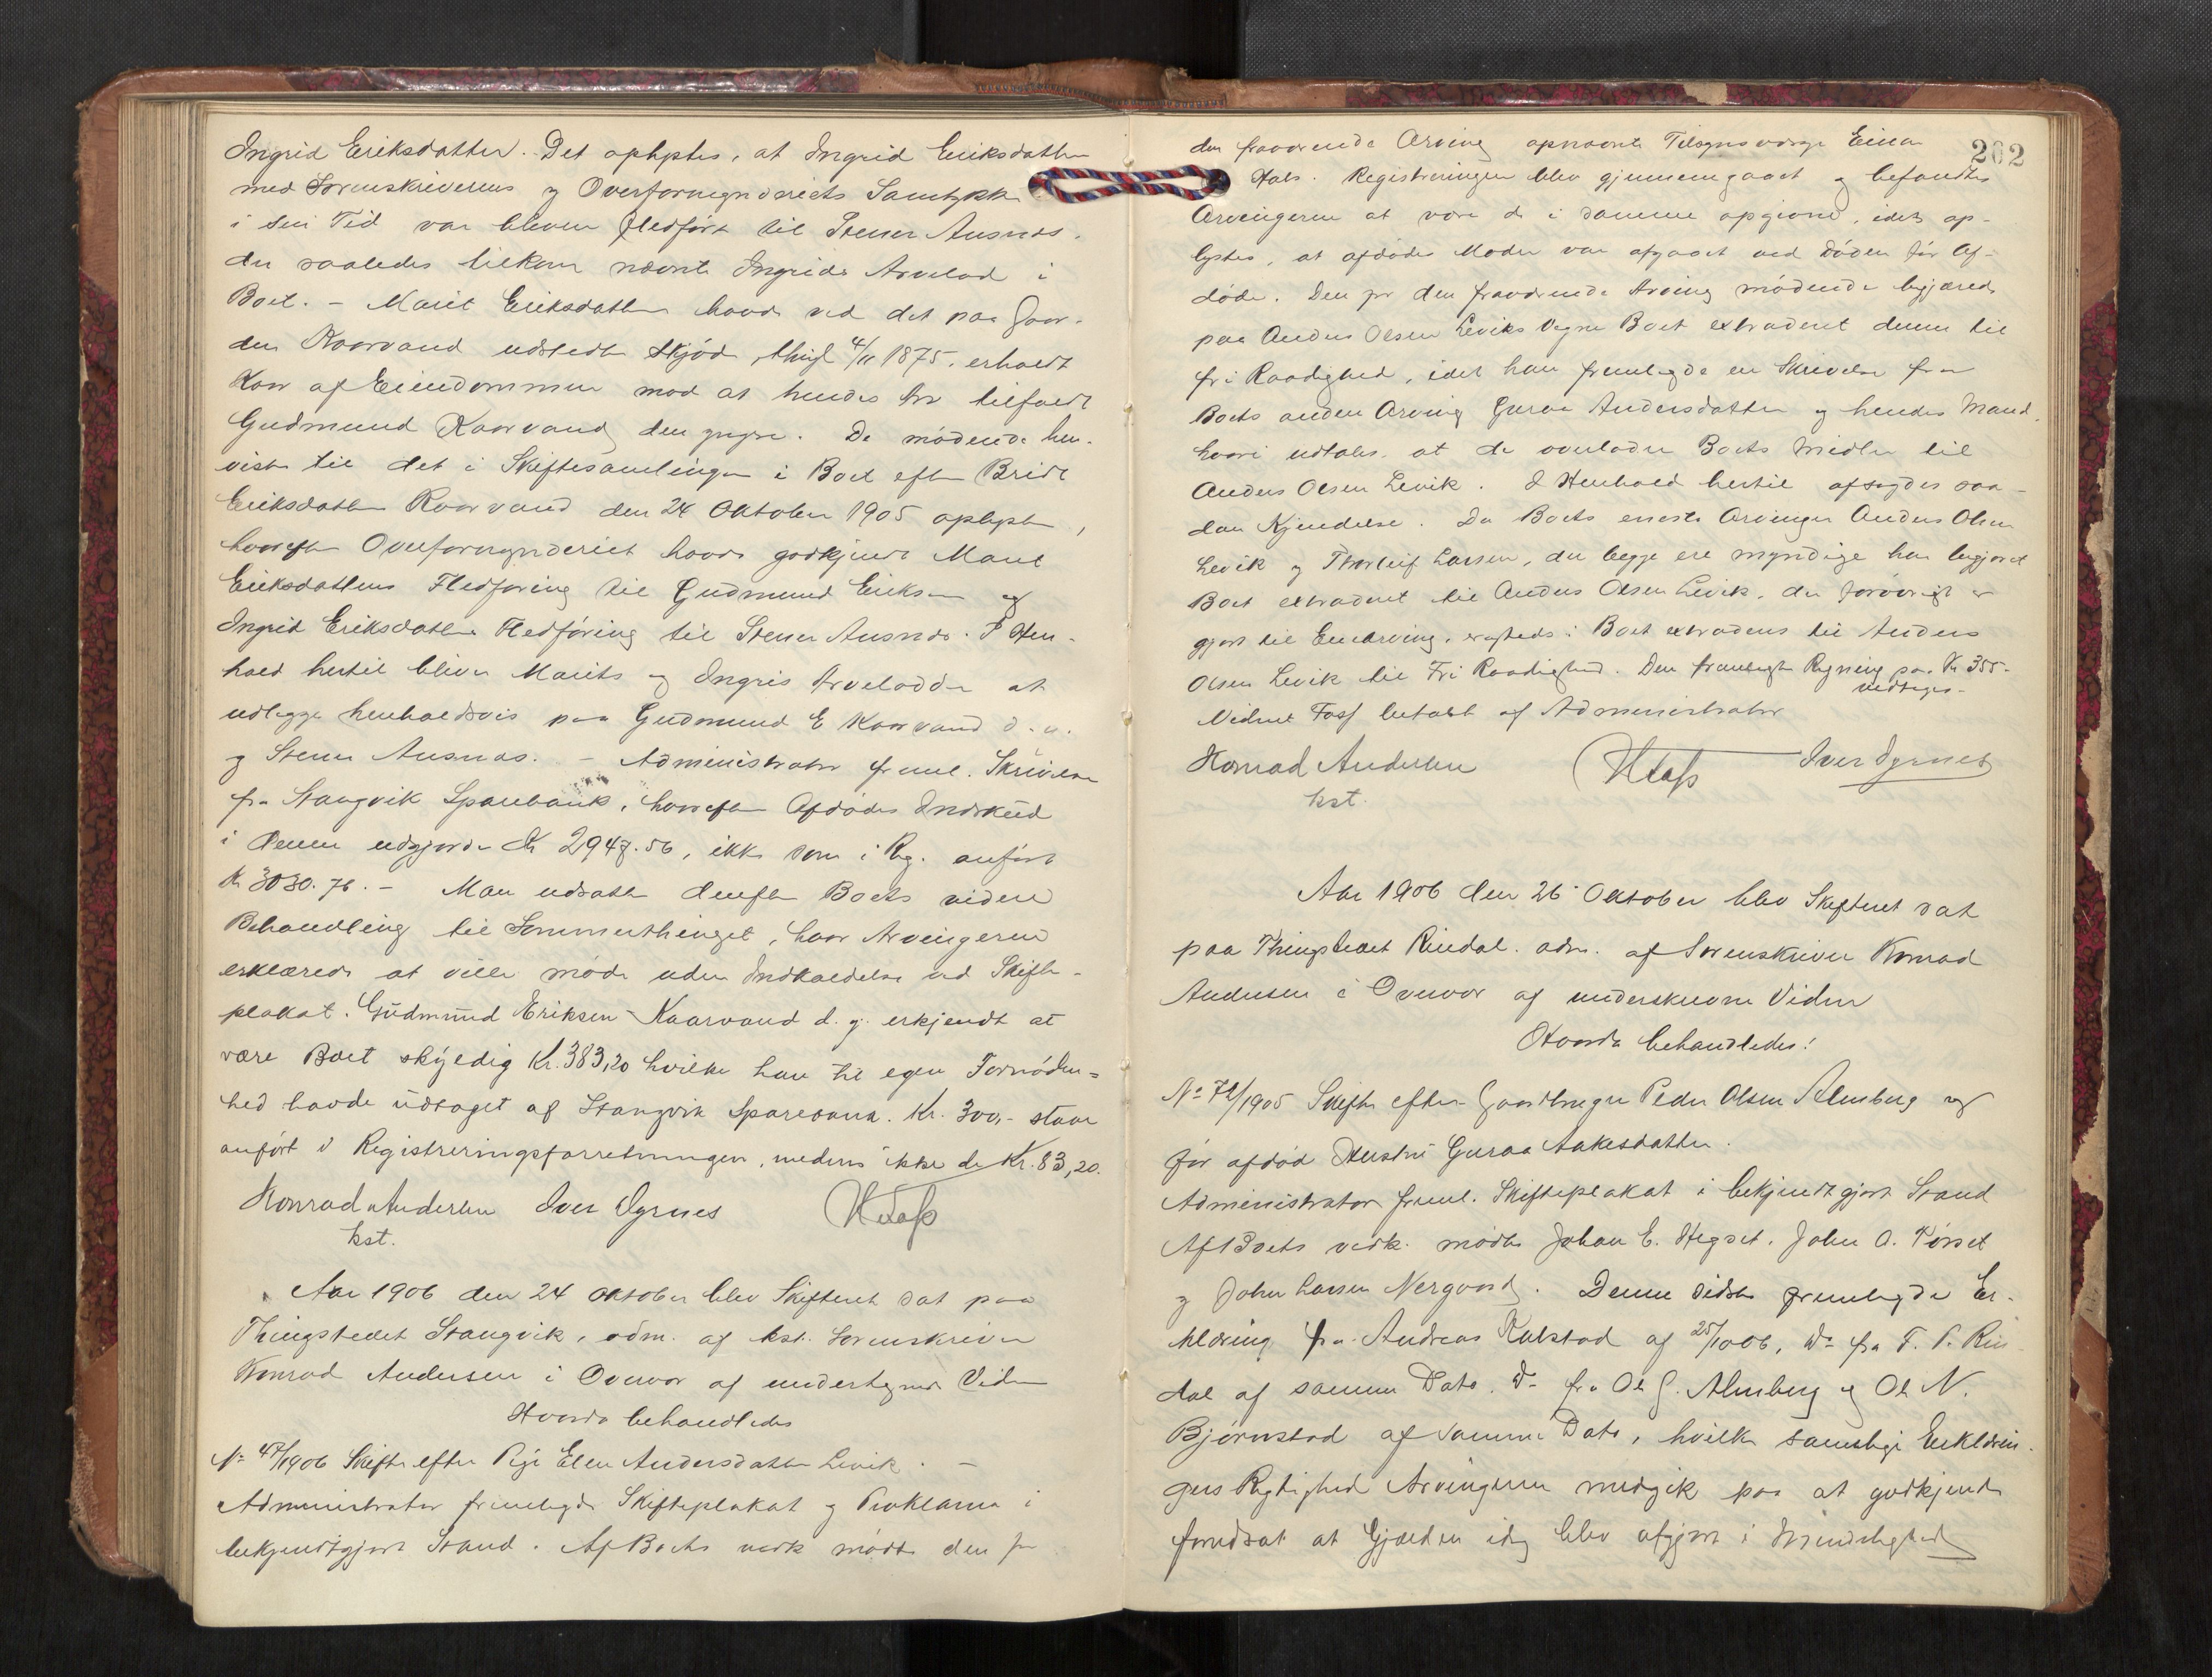 Ingrid Eriksdatter. Det oplystes, at Ingrid Eriksdatter
med Sorenskriverens og Overformynderiets Samtykke
i sin Tid var bleven fledført til Stener Ausnes,
der saaledes tilkom nævnte Ingrids Arvelod i
Boet. – Marit Eriksdatter havde ved det paa Gaar-
den Kaarvand udstedte Skjøde, thingl 4/11 1875, erholdt
Kaar af Eiendommen mod at hendes Arv tilfaldt
Gudmund Kaarvand den yngre. De mødende hen-
viste til det i Skiftesamlingen i Boet efter Bridt
Eriksdatter Kaarvand den 24 Oktober 1905 oplyste,
hvorefter Overformynderiet havde godkjendt Marit
Eriksdatters Fledføring til Gudmund Eriksen og
Ingrid Eriksdatters Fledføring til Stener Ausnes. I Hen-
hold hertil bliver Marits og Ingris Arvelodder at
udlægge henholdsvis paa Gudmund E Kaarvand d. y.
og Stener Ausnes. – Administrator freml. Skrivelse
fra Stangvik Sparebank, hvorefter Afdødes Indskud
i denne udgjorde Kr 2947.56, ikke som i Reg. anført
Kr 3030.76. – Man udsatte derefter Boets videre
Behandling til Sommerthinget, hvor Arvingerne
erklærede at ville møde uden Indkaldelse ved Skifte-
plakat. Gudmund Eriksen Kaarvand d. y. erkjendte at
være Boet skyldig Kr. 383,20 hvilke han til egen Fornøden=
hed havde udtaget af Stangvik Sparebank. Kr. 300,- staar
anført i Registreringsforretningen, medens ikke de Kr. 83,20.
Konrad Andersen Iver Øyrnes
kst.
Aar 1906 den 24 Oktober blev Skifteret sat paa
Thingstedet Stangvik, adm. af kst. Sorenskriver
Konrad Andersen i Overvær af undertegnede Vidner
Hvorda behandledes
No 47/1906 Skifte efter Pige Elen Andersdatter Levik. –
Administrator fremlagde Skifteplakat og Proklama i
bekjendtgjort Stand. Af Boets vedk mødte den for
202
den fraværende Arving opnævnte Tilsynsværge Einar
Hals. Registreringen blev gjennemgaaet og befandtes
Arvingerne at være de i samme opgivne, idet op-
lystes, at afdødes Moder var afgaaet ved Døden før Af-
døde. Den for den fraværende Arving mødende begjærede
paa Anders Olsen Leviks Vegne Boet extraderet denne til
fri Raadighed, idet han fremlagde en Skrivelse fra
Boets anden Arving Guraa Andersdatter og hendes Mand,
hvori udtales, at de overlader Boets Midler til
Anders Olsen Levik. I Henhold hertil afsagdes saa-
dan Kjendelse. Da Boets eneste Arvinger Anders Olsen
Levik og Thorleif Larsen, der begge ere myndige har begjæret
Boet extraderet til Anders Olsen Levik, der forøvrigt er
gjort til Enearving, eragtedes: Boet extraderes til Anders
Olsen Levik til Fri Raadighed. Den fremlagte Regning paa Kr 355-
vedtages-
Vidnet Foss betalt af Administrator
Konrad Andersen Iver Øyrnes
kst.
Aar 1906 den 26 Oktober blev Skifteret sat
paa Thingstedet Rindal. adm. af Sorenskriver Konrad
Andersen i Overvær af underskrevne Vidner
Hvorda behandledes:
No 72/1905 Skifte efter Gaardbruger Peder Olsen Almberg og
før afdød Hustru Guraa Aakesdatter.
Administrator freml. Skifteplakat i bekjendtgjort Stand
Af Boets vedk. mødte Johan E. Hegset, John O. Tørset
og John Larsen Nergaard. Denne sidste fremlagde Er-
klæring fra Andreas Kalstad af 25/10 06, Do fra T. P. Rin-
dal af samme Dato, Do fra Ole G. Almberg og Ole N.
Bjørnstad af samme Dato, hvilke samtlige Erklærin-
gers Rigtighed Arvingerne medgik paa at godkjende
forudsat at Gjælden idag blev afgjort i Mindelighed